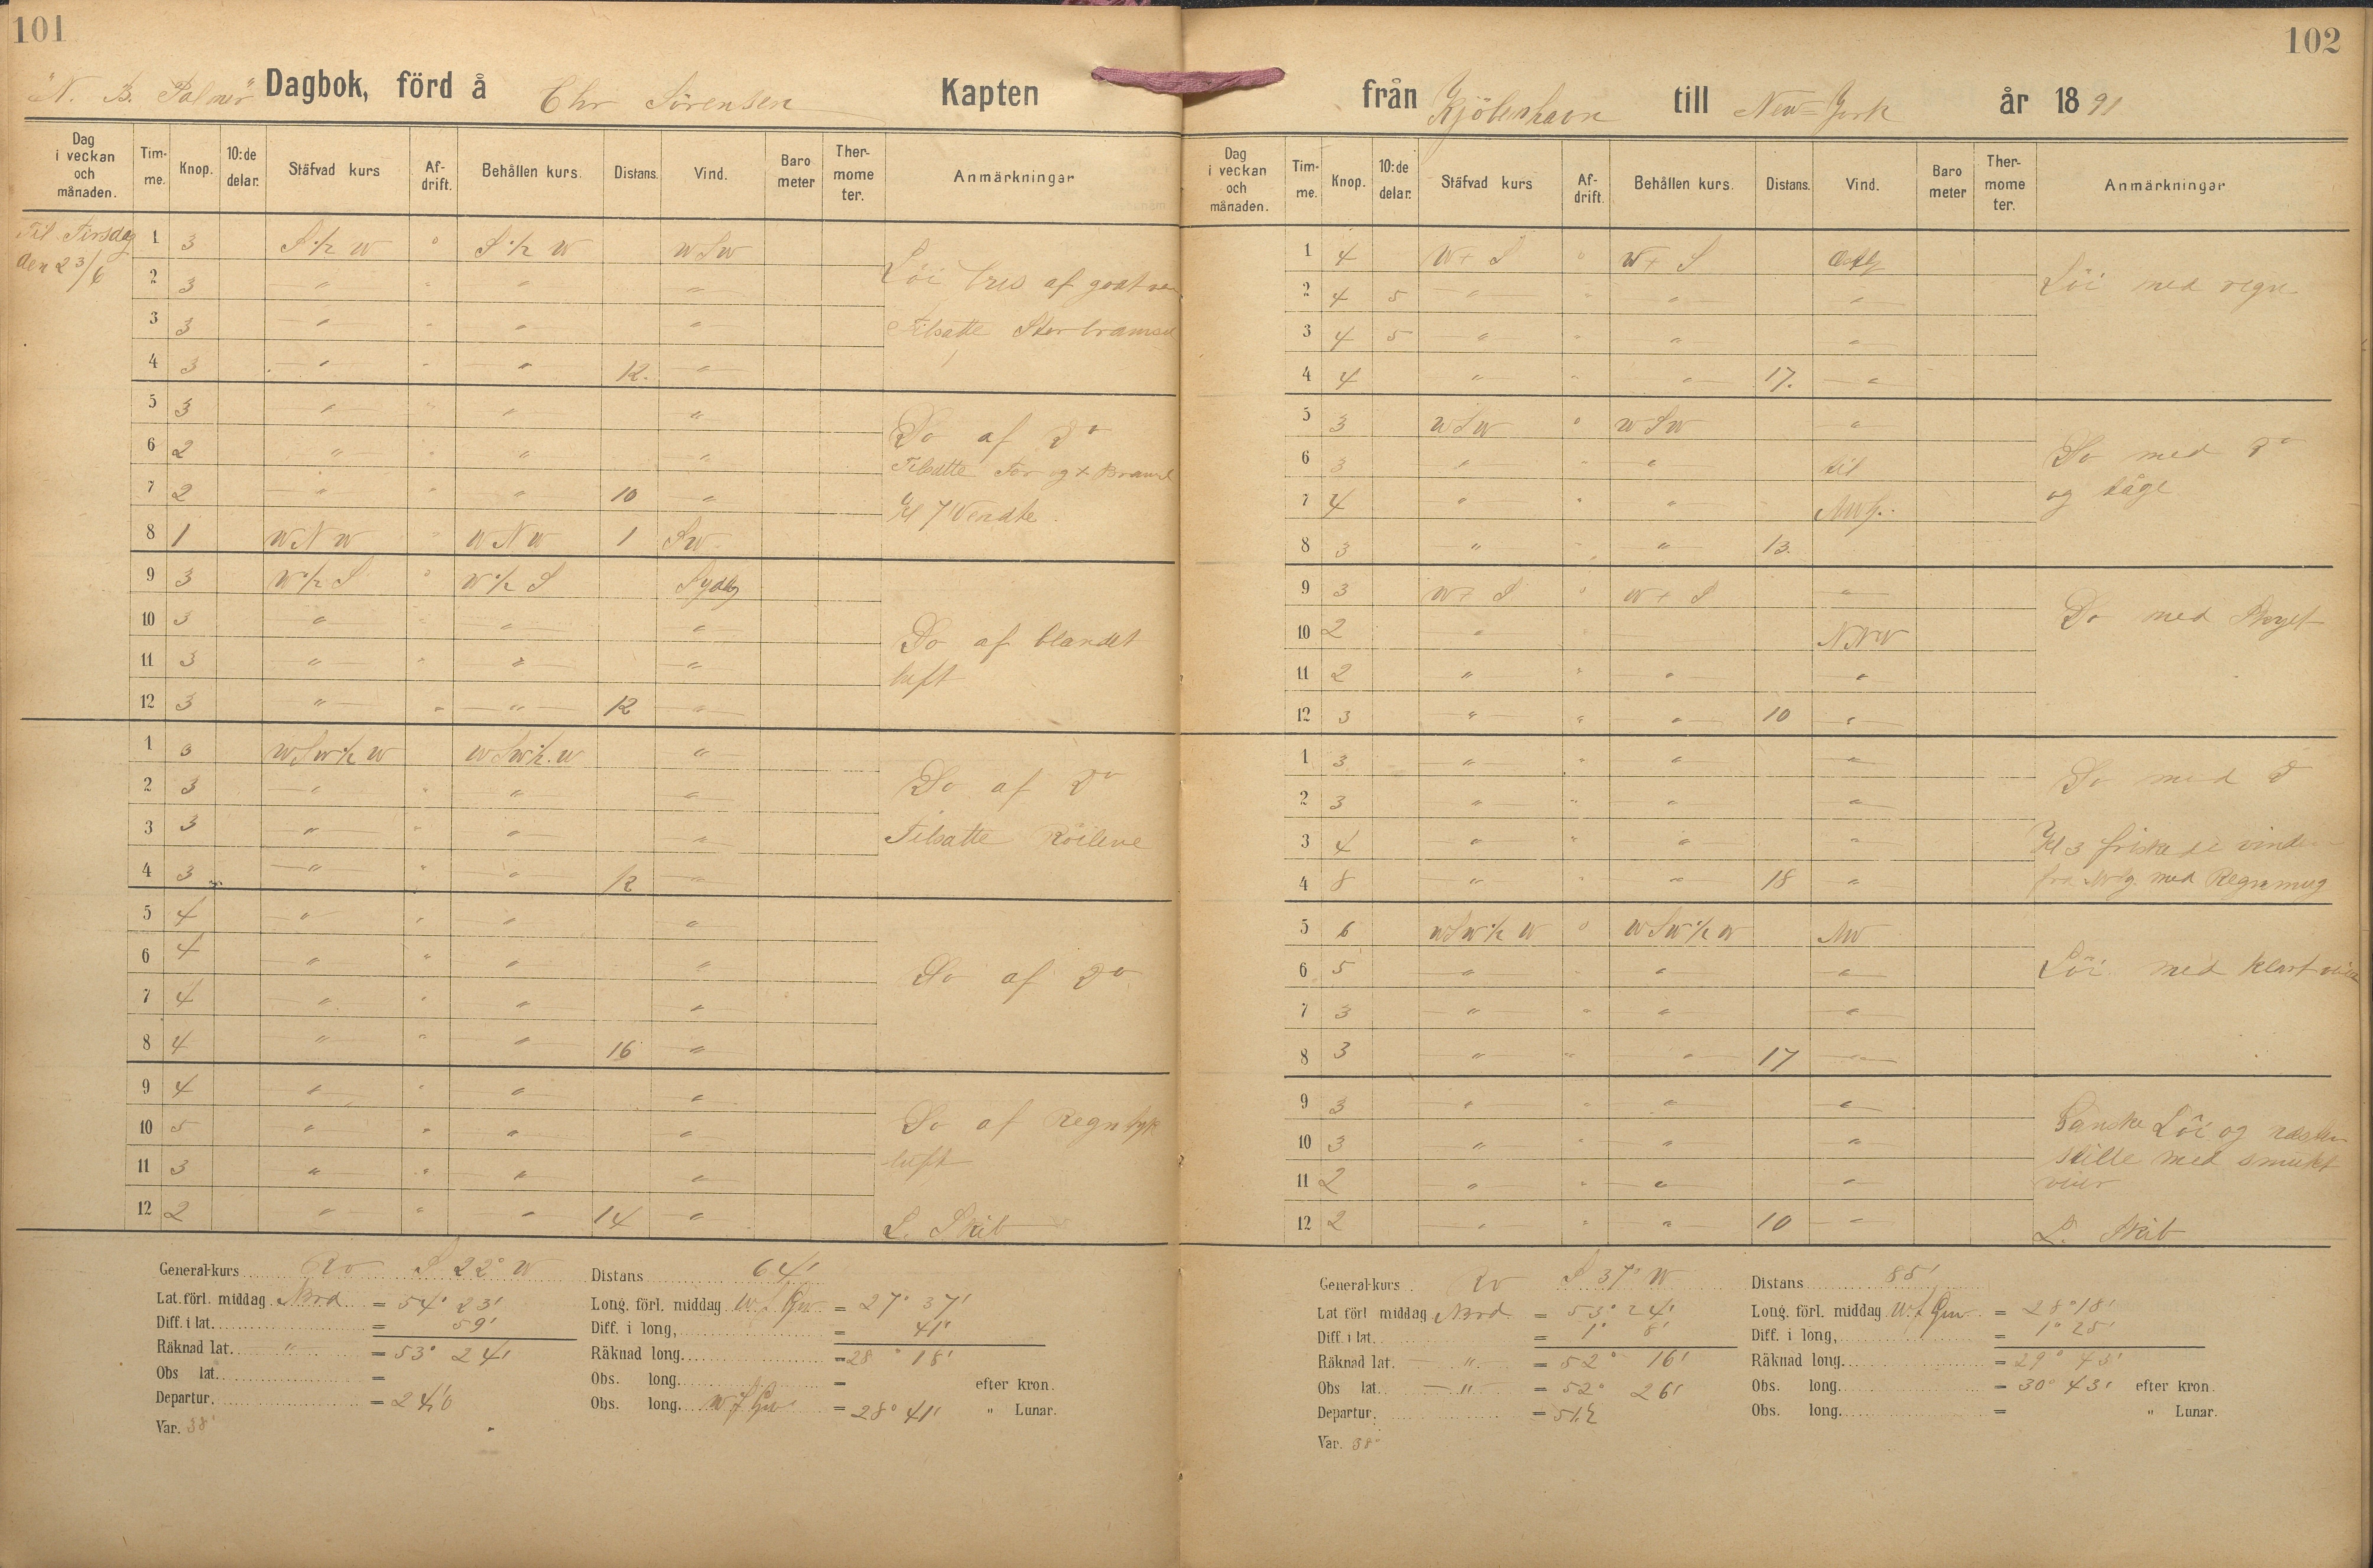 101
"N. B. Palmer" Dagbok, förd å Chr Sörensen Kapten
Dag i veckan och månaden. Tim-me. Knop. 10:de delar. Stäfvad kurs Af-drift. Behållen kurs. Distans. Vind. Baro meter Ther-mome ter. Anmärkningar
Til Tirsdag den 23/6
1 3 S ½ W 0 S ½ W WSW
2 3 " " " "
3 3 " " " "
4 3 " " " 12. "
Löi af godt
Tilsatte Storbramseil
5 3 " " " "
6 2 " " " "
7 2 " " " 10 "
8 1 WNW " WNW 1 SW
Do af Do
Tilsatte For og
Kl 7 Vendte.
9 3 W ½ S 0 W ½ S Sydlig
10 3 " " " "
11 3 " " " "
12 3 " " " 12 "
Do af blandet
luft
1 3 WSW ½ W WSW ½ W "
2 3 " " " "
3 3 " " " "
4 3 " " " 12 "
Do af Do
Tilsatte Röilene
5 4 " " " "
6 4 " " " "
7 4 " " " "
8 4 " " " 16 "
Do af Do
9 4 " " " "
10 5 " " " "
11 3 " " " "
12 2 " " " 14 "
Do af Regn
luft
L. Skib
General-kurs Rv S 22° W Distans 64'
Lat. förl. middag Nord = 54° 23' Long. förl. middag W. f Grw = 27° 37'
Diff. i lat. = 59' Diff. i long, = 41'
Räknad lat. " = 53° 24' Räknad long. = 28° 18'
Obs lat. = Obs. long. = efter kron.
Departur. = 24,0 Obs. long. W f Grw = 28° 41' " Lunar.
Var. 38°
102
från Kjöbenhavn till New=York år 1891
Dag i veckan och månaden. Tim-me. Knop. 10:de delar. Stäfvad kurs Af-drift. Behållen kurs. Distans. Vind. Baro meter Ther-mome ter. Anmärkningar
1 4 W + S 0 W + S Östlg
2 4 5 " " " "
3 4 5 " " " "
4 4 " " " 17. "
Löi med regn
5 3 WSW 0 WSW "
6 3 " " " til
7 4 " " " NWlg.
8 3 " " " 13.
Do med Do
og tåge
9 3 W + S 0 W + S "
10 2 " " NNW
11 2 " " " "
12 3 " " " 10 "
Do med Skyet
1 3 " " " "
2 3 " " " "
3 4 " " " "
4 8 " " " 18 "
Do med D
Kl 3 friskede vinden
fra NWlg. med
5 6 WSW ½ W 0 WSW ½ W NW
6 5 " " " "
7 3 " " " "
8 3 " " " 17 "
Löi med klart
9 3 " " " "
10 3 " " " "
11 2 " " " "
12 2 " " " 10 "
Ganske Löi og næsten
stille med smukt
veir
L. Skib
General-kurs Rv S 37° W Distans 85'
Lat förl middag Nord = 53° 24' Long. förl. middag W. f Grw = 28° 18'
Diff. i lat. = 1° 8' Diff. i long, = 1° 25'
Räknad lat. " = 52° 16' Räknad long. = 29° 43'
Obs lat. " = 52° 26' Obs. long. = 30° 43' efter kron.
Departur. = 51,2 Obs. long. = " Lunar.
Var. 38°